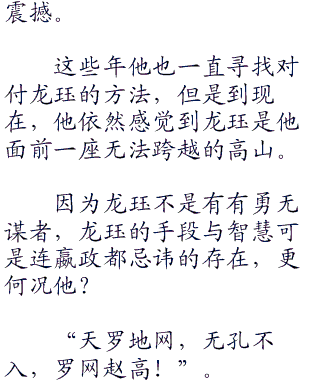 震撼。
这些年他也一直寻找对
付龙珏的方法，但是到现
在，他依然感觉到龙珏是他
面前一座无法跨越的高山。
因为龙珏不是有有勇无
谋者，龙珏的手段与智慧可
是连嬴政都忌讳的存在，更
何况他？
“天罗地网，无孔不
入，罗网赵高！”。